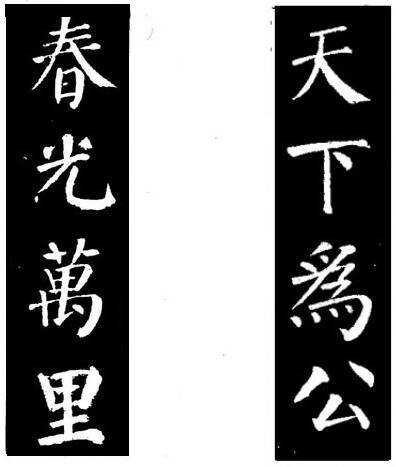 天下爲公
春光萬里